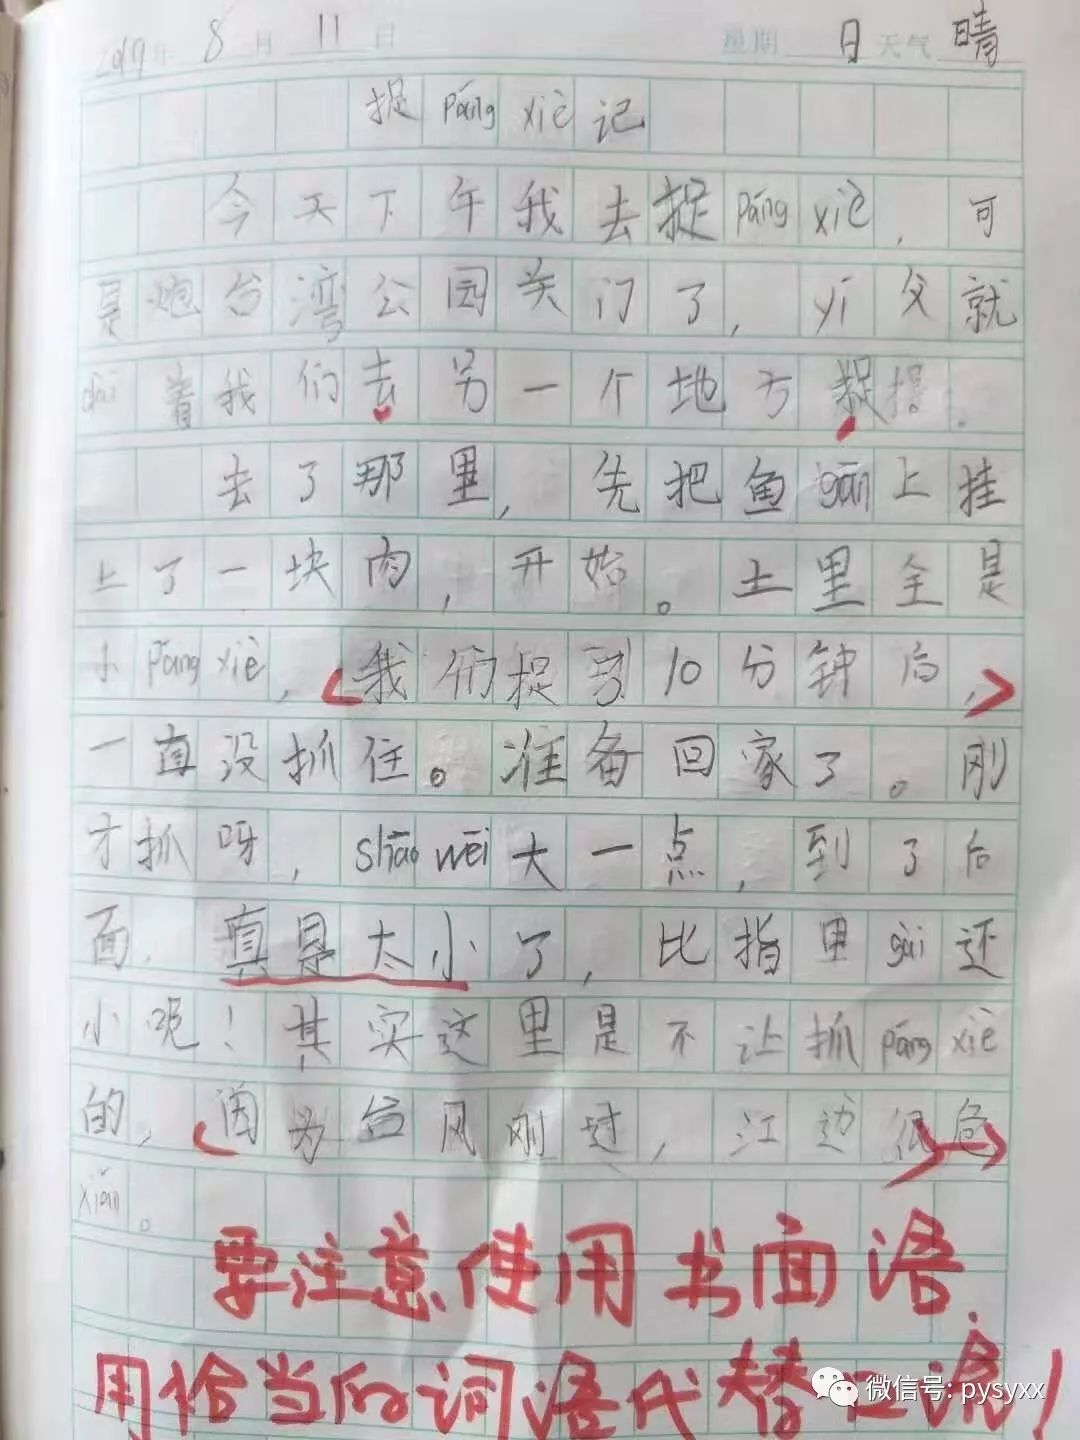 2019年 8 月 11 日 星期 日 天气 晴
捉 páng xiè 记
今天下午我去捉 páng xiè，可
是炮台湾公园关门了，yí 父就
dài 着我们去另一个地方捉。
去了那里，先把鱼 gān 上挂
上了一块肉，开始。土里全是
小 páng xiè，我们捉到10分钟后，
一直没抓住。准备回家了。刚
才抓呀，shāo wēi 大一点，到了后
面，真是太小了，比指甲 gài 还
小呢！其实这里是不让抓 páng xiè
的，因为台风刚过，江边很危
xiǎn。
要注意使用书面语.
用恰当的词语代替口语！
微信号: pysyxx